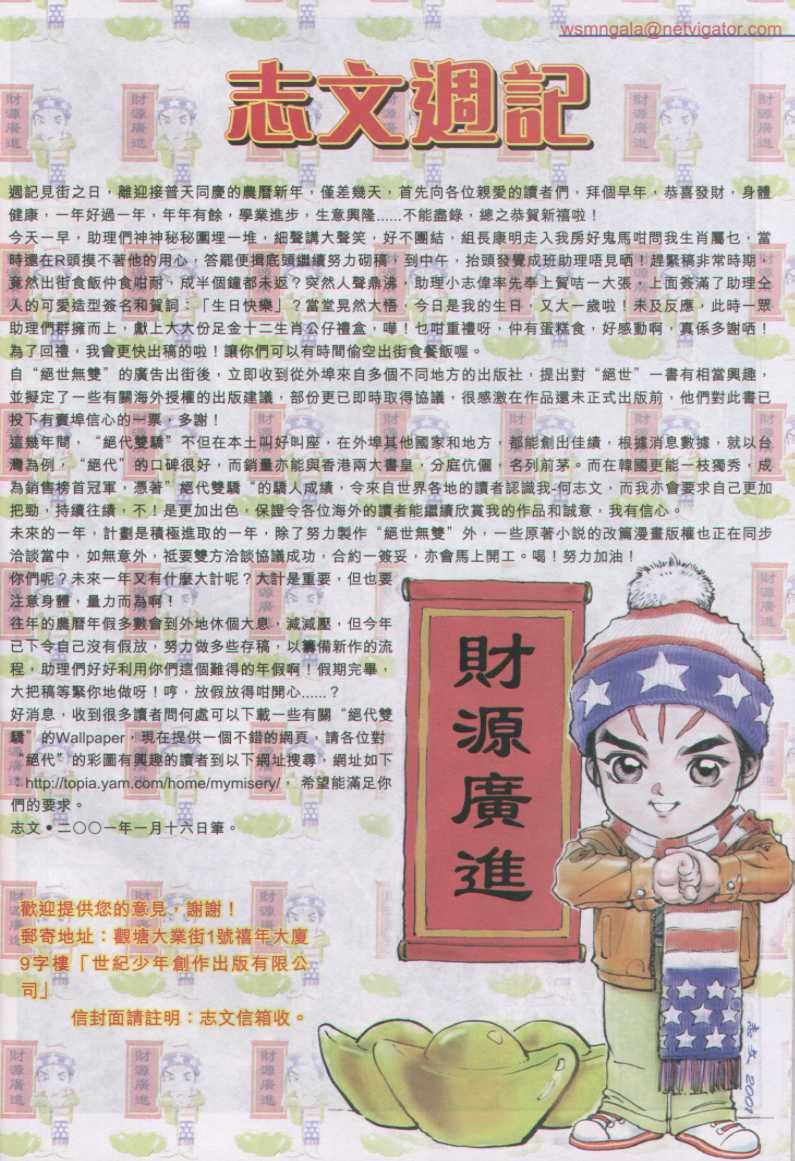 wsmngala@netvigator.com
志文週記
週記見街之日，離迎接普天同慶的農曆新年，僅差幾天，首先向各位親愛的讀者們，拜個早年，恭喜發財，身體
健康，一年好過一年，年年有餘，學業進步，生意興隆......不能盡錄，總之恭賀新禧啦！
今天一早，助理們神神秘秘圍埋一堆，細聲講大聲笑，好不團結，組長康明走入我房好鬼馬咁問我生肖屬乜，當
時還在R頭摸不著他的用心，答罷便揖底頭繼續努力砌稿，到中午，抬頭發覺成班助理唔見晒！趕緊稿非常時期，
竟然出街食飯仲食咁耐，成个半個鐘都未返？突然人聲鼎沸，助理小志偉率先奉上賀咭一大張，上面簽滿了助理仝
人的可愛造型簽名和賀詞：「生日快樂」？當堂晃然大悟，今日是我的生日，又大一歲啦！未及反應，此時一眾
助理們群擁而上，獻上大大份足金十二生肖公仔禮盒，嘩！乜咁重禮呀，仲有蛋糕食，好感動啊，真係多謝晒！
為了回禮，我會更快出稿的啦！讓你們可以有時間偷空出街食餐飯喔。
自“絕世無雙”的廣告出街後，立即收到從外埠來自多個不同地方的出版社，提出對“絕世”一書有相當興趣，
並擬定了一些有關海外授權的出版建議，部份更已即時取得協議，很感激在作品還未正式出版前，他們對此書已
投下有賣埠信心的一票，多謝！
這幾年間，“絕代雙驕”不但在本土叫好叫座，在外埠其他國家和地方，都能創出佳績，根據消息數據，就以台
灣為例，“絕代”的口碑很好，而銷量亦能與香港兩大書皇，分庭伉儷，名列前茅。而在韓國更能一枝獨秀，成
為銷售榜首冠軍，憑著”絕代雙驕“的驕人成績，令來自世界各地的讀者認識我-何志文，而我亦會要求自己更加
把勁，持續往績，不！是更加出色，保證令各位海外的讀者能繼續欣賞我的作品和誠意，我有信心。
未來的一年，計劃是積極進取的一年，除了努力製作“絕世無雙”外，一些原著小說的改篇漫畫版權也正在同步
洽談當中，如無意外，祇要雙方洽談協議成功，合約一簽妥，亦會馬上開工。喝！努力加油！
你們呢？未來一年又有什麼大計呢？大計是重要，但也要
注意身體，量力而為啊！
往年的農曆年假多數會到外地休個大息，減減壓，但今年
已下令自己沒有假放，努力做多些存稿，以籌備新作的流
程，助理們好好利用你們這個難得的年假啊！假期完畢，
大把稿等緊你地做呀！哼，放假放得咁開心......？
好消息，收到很多讀者問何處可以下載一些有關“絕代雙
驕”的Wallpaper，現在提供一個不錯的網頁，請各位對
“絕代”的彩圖有興趣的讀者到以下網址搜尋，網址如下
：http://topia.yam.com/home/mymisery/，希望能滿足你
們的要求。
志文•二〇〇一年一月十六日筆。
財源廣進
歡迎提供您的意見，謝謝！
郵寄地址：觀塘大業街1號禧年大廈
9字樓「世紀少年創作出版有限公
司」
信封面請註明：志文信箱收。
志文 2001